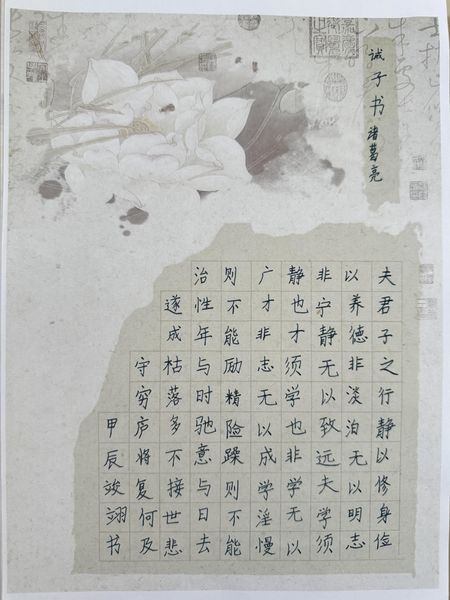 诫子书 诸葛亮
夫君子之行静以修身俭
以养德非淡泊无以明志
非宁静无以致远夫学须
静也才须学也非学无以
广才非志无以成学淫慢
则不能励精险躁则不能
治性年与时驰意与日去
遂成枯落多不接世悲
守穷庐将复何及
甲辰竣翊书